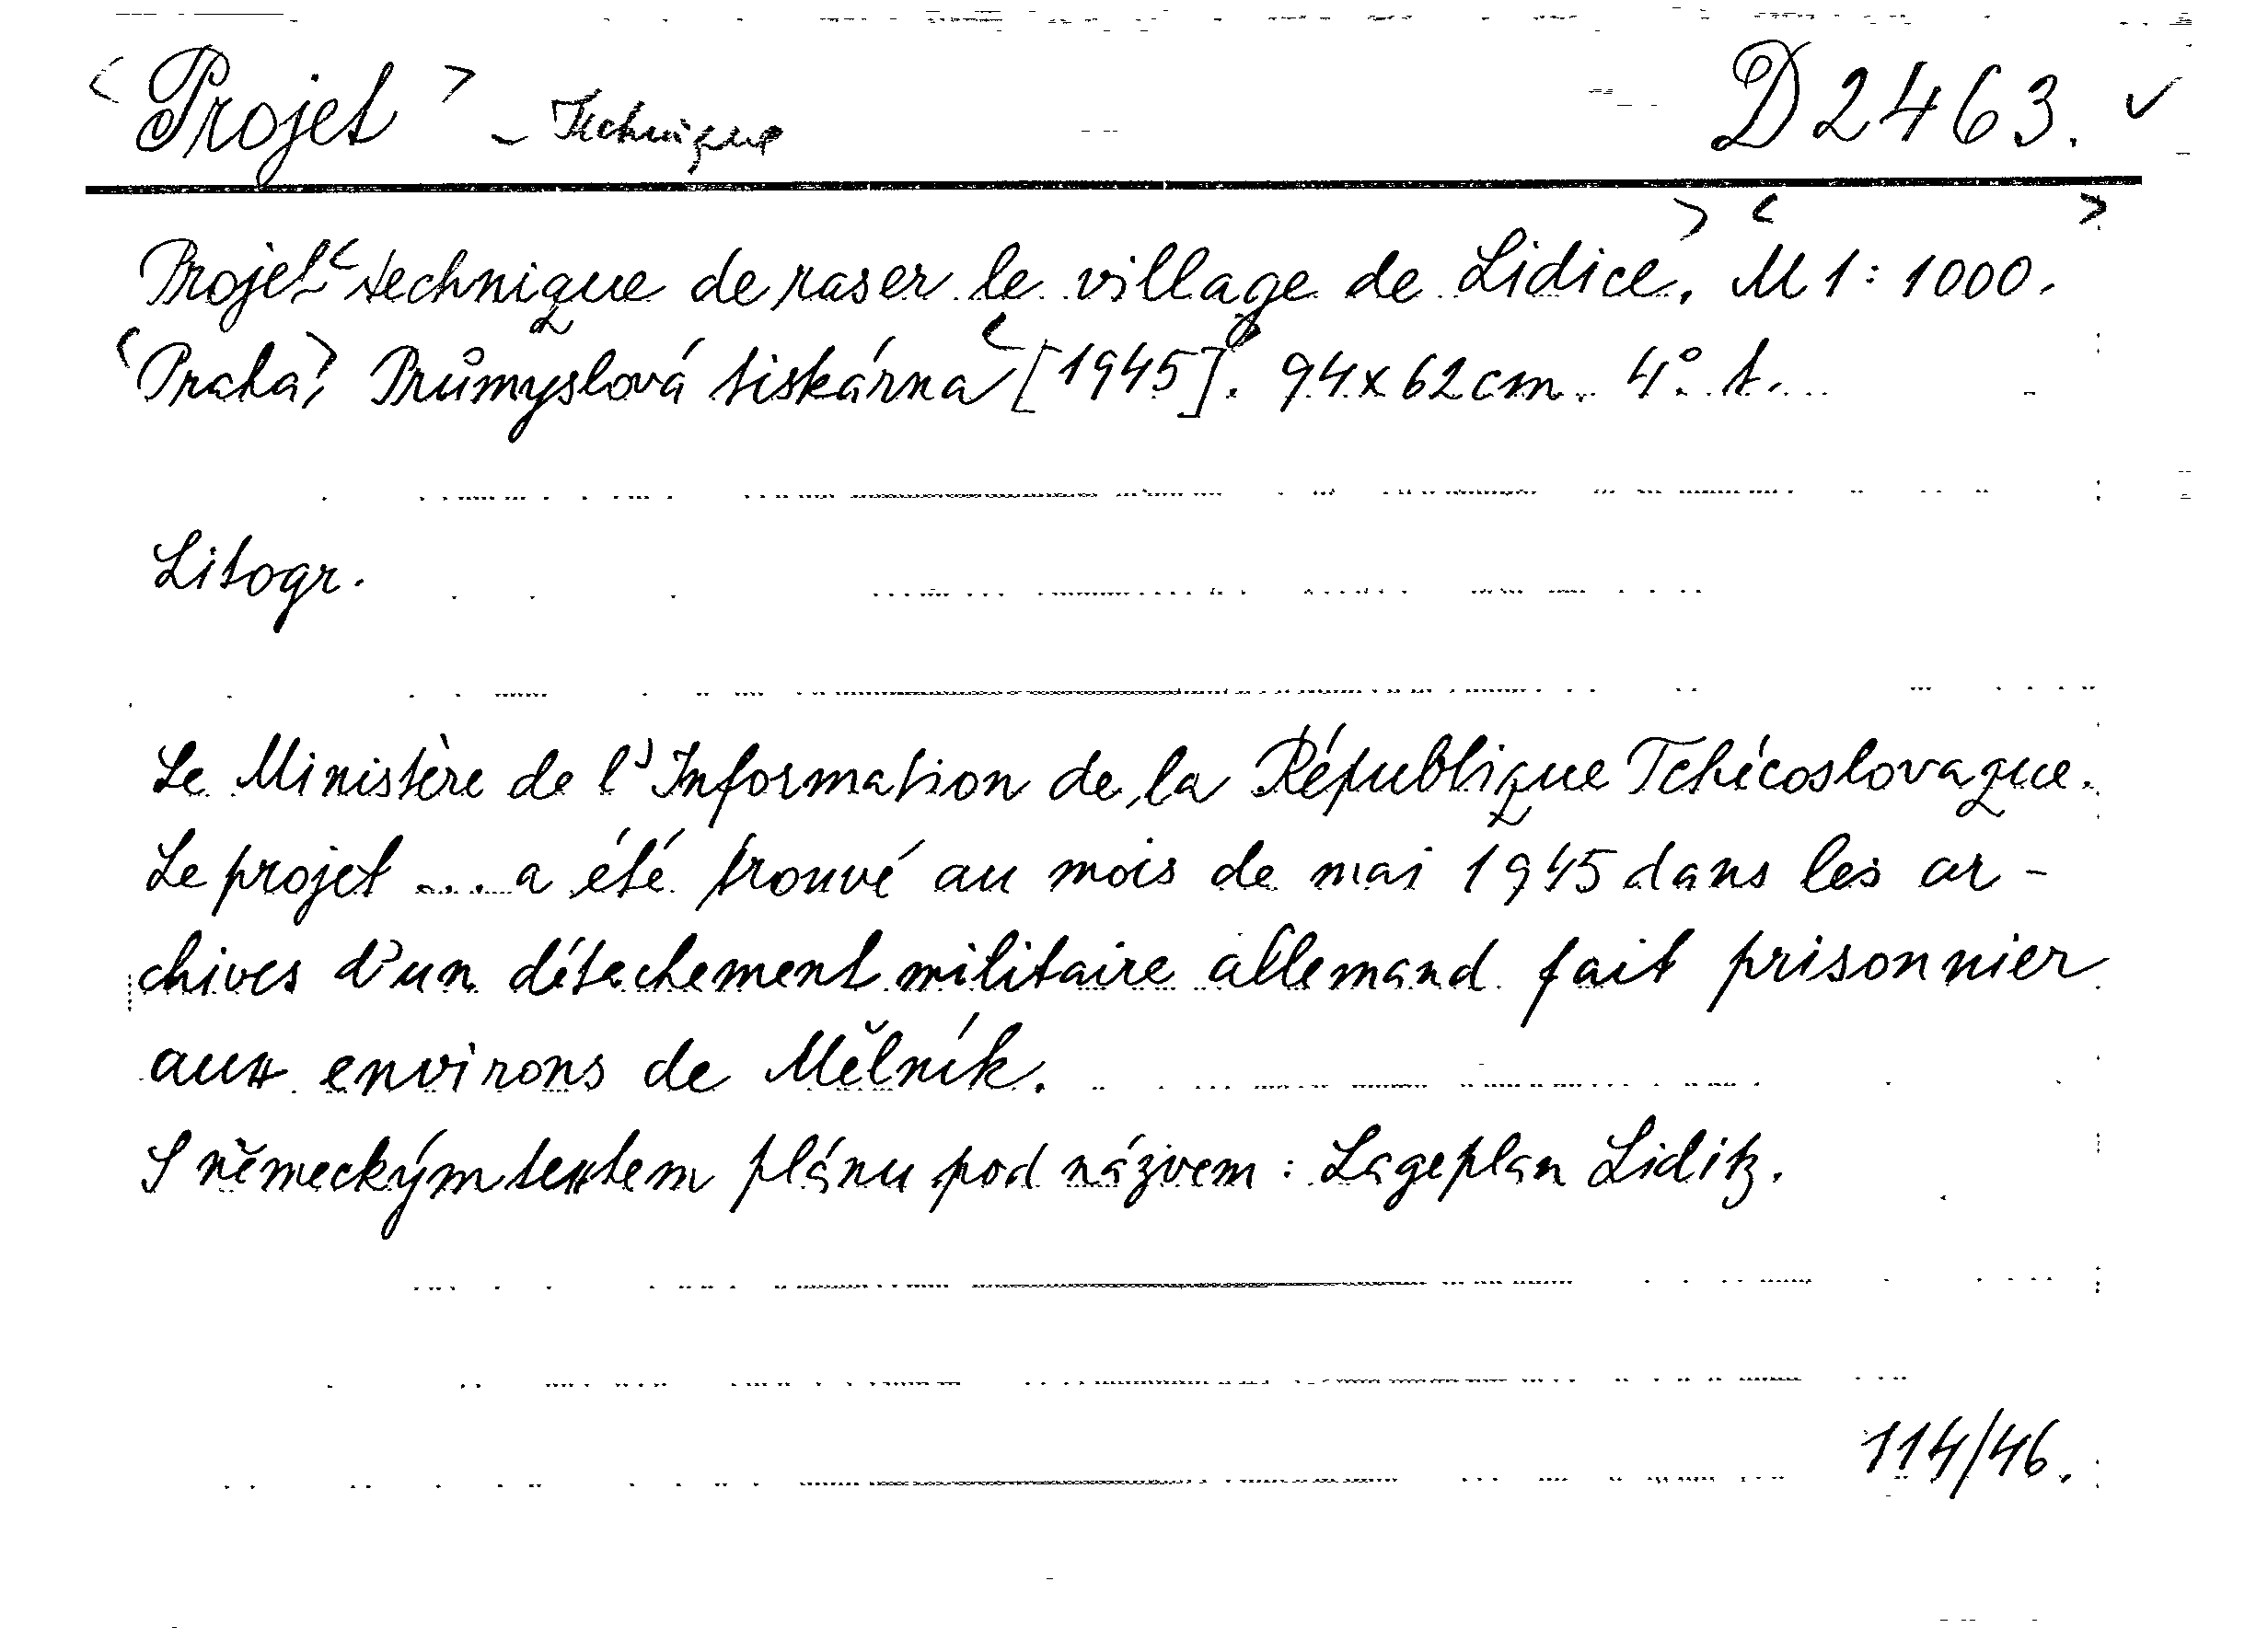 <Projet> - Technique D 2463. ✓
Projet <technique de raser le village de Lidice.> <M 1 : 1000.>
<Praha,> Průmyslová tiskárna <[1945]>. 94 x 62 cm. 4°. t.
Litogr.
Le Ministère de l'Information de la République Tchécoslovaque.
Le projet .... a été trouvé au mois de mai 1945 dans les ar-
chives d'un détechement militaire allemand fait prisonnier
aux environs de Mělník.
S německým textem plánu pod názvem : Lageplan Liditz.
114/46.